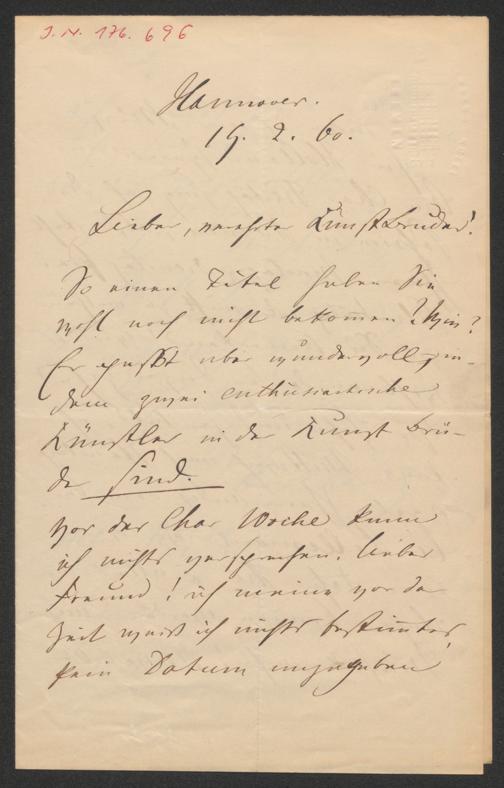 J. N. 176. 696
Hannover.
19. 2. 60.
Lieber, verehrter Kunstbruder!
So einen Titel haben Sie
wohl noch nicht bekom̅en?
Er paßt aber wundervoll, in-
dem zwei enthusiastische
Künstler in der Kunst Brü-
der sind.
Vor der Char Woche kann
ich nichts versprechen. lieber
Freund! ich meine vor der
Zeit weiß ich nichts bestim̅tes,
kein Datum anzugeben